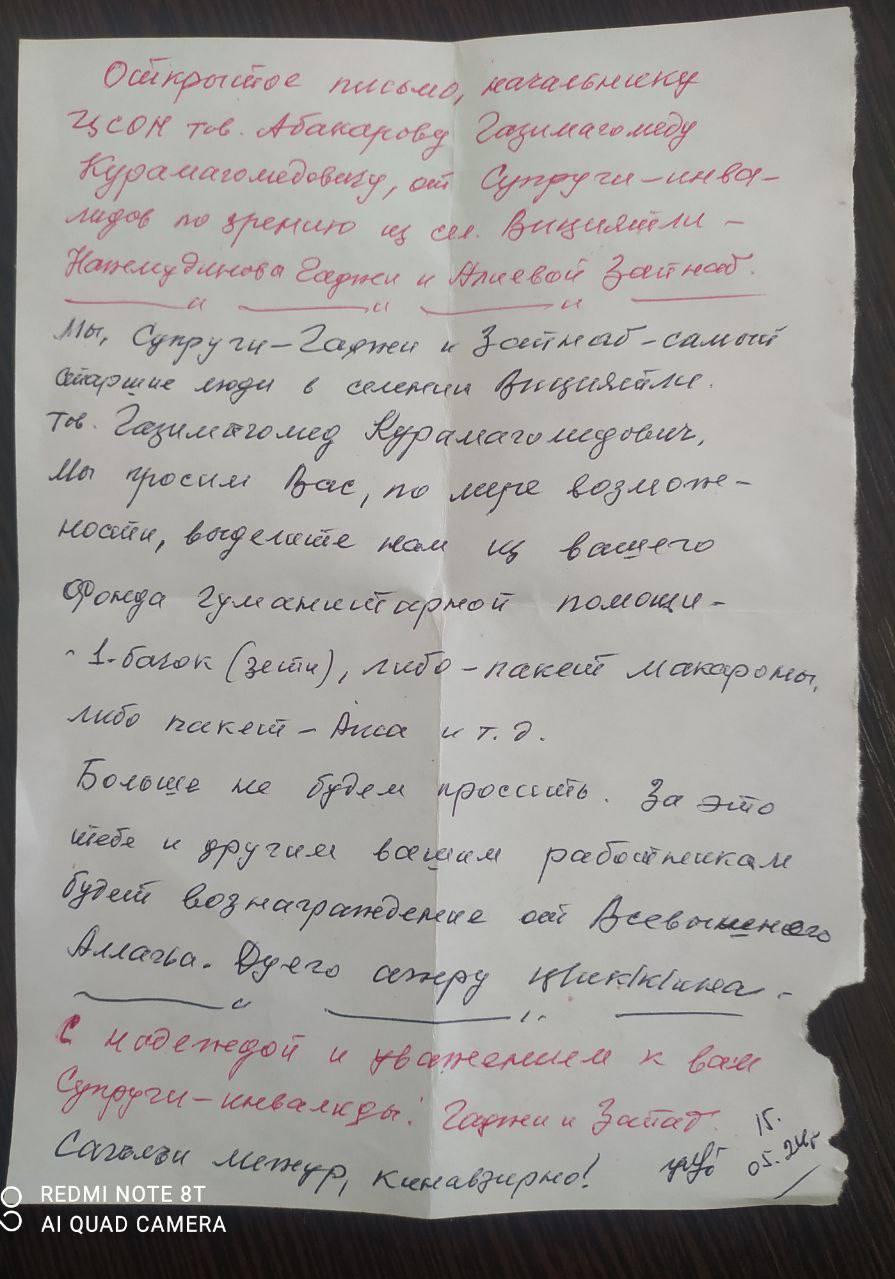 Открытое письмо, начальнику
ЦСОН тов. Абакарову Газимагомеду
Курамагомедовичу, от Супруги-инва-
лидов по зрению из сел. Вициятли -
Нажмудинова Гаджи и Алиевой Зайнаб.
Мы, Супруги-Гаджи и Зайнаб-самый
старшие люди в селении Вициятли.
Тов. Газимагомед Курамагомедович,
Мы просим Вас, по мере возмож-
ности, выделите нам из вашего
Фонда гуманитарной помощи-
- 1-бачок (зети), либо-пакет макароны,
либо пакет - и т. д.
Больше не будем просить. За это
тебе и другим вашим работникам
будет вознаграждение от Всевышнего
Аллагьа. Дуего ажру
С надеждой и уважением к вам
Супруги-инвалиды: Гаджи и
Сагълъи межур, кинавзирно!
15.
05. 24г
REDMI NOTE 8T
AI QUAD CAMERA